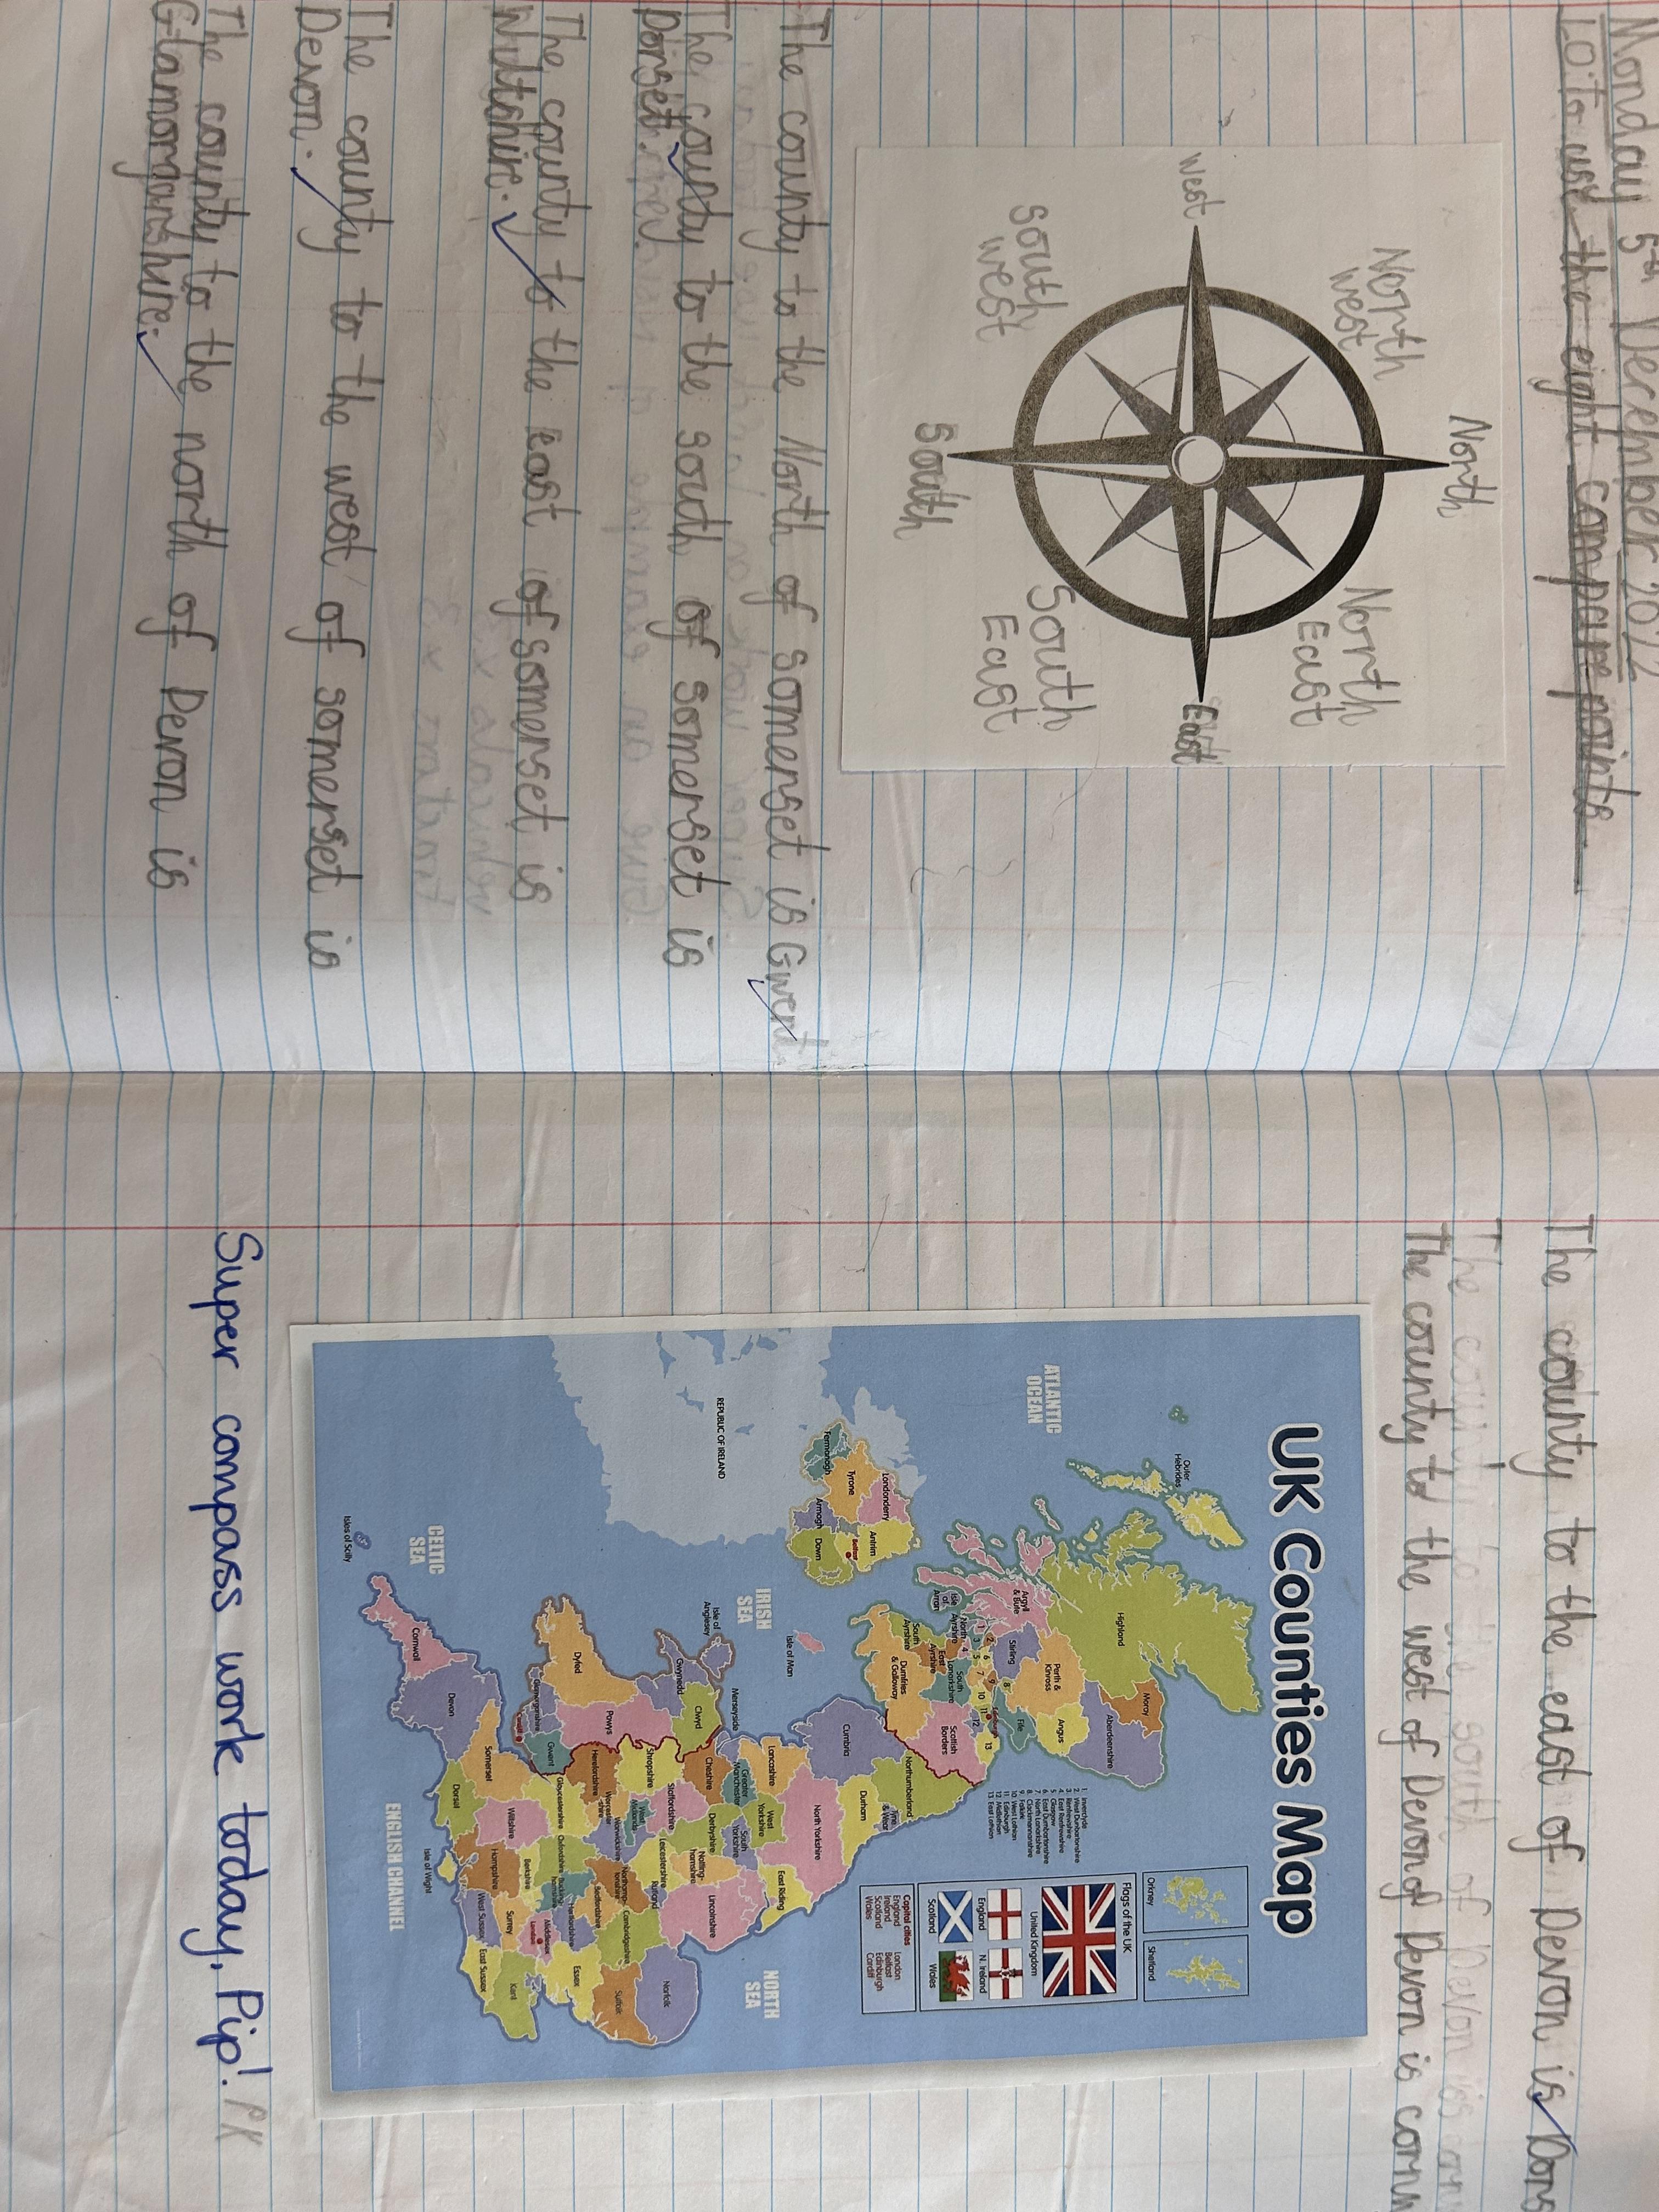 Monday 5th December 2022
LO: To use the eight compass points
North
North
West
North
East
West
East
South
West
South
East
South
The county to the North of somerset is Gwent
The county to the south of somerset is
Dorset.
The county to the east of somerset is
Wiltshire.
The county to the west of somerset is
Devon.
The county to the north of Devon is
Glamorganshire.
The county to the east of Devon is Dors
The county to the south of Devon is
The county to the west of Devon of Devon is corn
UK Counties Map
Orkney
Shetland
Outer
Hebrides
ATLANTIC
OCEAN
Highland
Moray
Aberdeenshire
Perth &
Kinross
Angus
Argyll
& Bute
Stirling
Fife
1
2
3
4
5
6
7
8
9
10
11
12
13
Edinburgh
Isle of
Arran
North
Ayrshire
East
Ayrshire
South
Ayrshire
South
Lanarkshire
Scottish
Borders
Dumfries
& Galloway
1. Inverclyde
2. West Dunbartonshire
3. Renfrewshire
4. East Renfrewshire
5. Glasgow
6. East Dunbartonshire
7. North Lanarkshire
8. Clackmannanshire
9. Falkirk
10. West Lothian
11. Edinburgh
12. Midlothian
13. East Lothian
Flags of the UK
United Kingdom
England
N. Ireland
Scotland
Wales
Capital cities
England London
Ireland Belfast
Scotland Edinburgh
Wales Cardiff
Londonderry
Antrim
Tyrone
Belfast
Fermanagh
Armagh
Down
REPUBLIC OF IRELAND
IRISH
SEA
Isle of Man
Northumberland
Tyne
& Wear
Durham
Cumbria
North Yorkshire
Lancashire
West
Yorkshire
East Riding
South
Yorkshire
Greater
Manchester
Merseyside
Cheshire
Derbyshire
Notting-
hamshire
Lincolnshire
NORTH
SEA
Isle of
Anglesey
Gwynedd
Clwyd
Shropshire
Staffordshire
Leicestershire
Rutland
Norfolk
Powys
Dyfed
West
Midlands
Warwickshire
Northamp-
tonshire
Cambridgeshire
Suffolk
Herefordshire
Worcester
-shire
Bedfordshire
Glamorganshire
Cardiff
Gwent
Gloucestershire
Oxfordshire
Bucking
hamshire
Hertfordshire
Essex
Middlesex
London
Berkshire
Wiltshire
Surrey
Kent
Somerset
Hampshire
West Sussex
East Sussex
Dorset
Devon
Cornwall
Isle of Wight
CELTIC
SEA
Isles of Scilly
ENGLISH CHANNEL
Super compass work today, Pip! PK